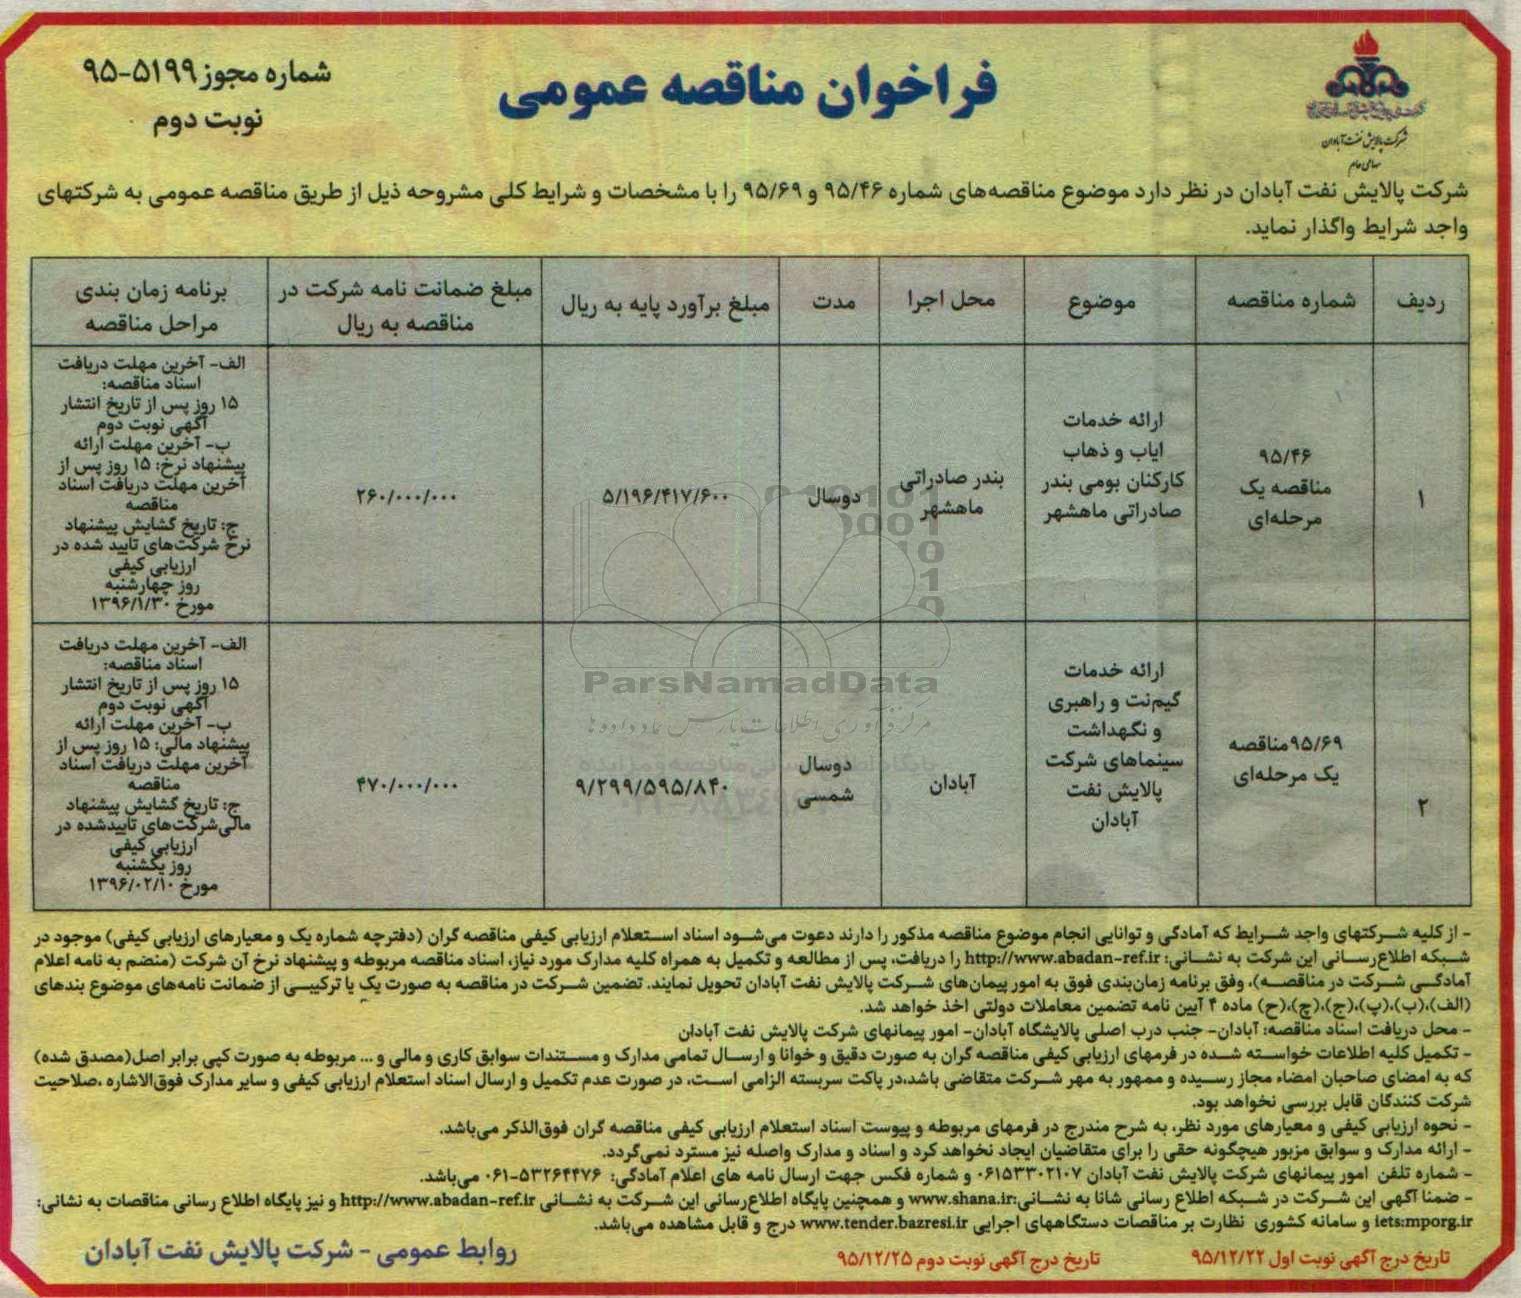 شرکت پالایش نفت آبادان
سهامی عام
فراخوان مناقصه عمومی
شماره مجوز ۵۱۹۹-۹۵
نوبت دوم
شرکت پالایش نفت آبادان در نظر دارد موضوع مناقصه‌های شماره ۹۵/۴۶ و ۹۵/۶۹ را با مشخصات و شرایط کلی مشروحه ذیل از طریق مناقصه عمومی به شرکتهای
واجد شرایط واگذار نماید.
ردیف
شماره مناقصه
موضوع
محل اجرا
مدت
مبلغ برآورد پایه به ریال
مبلغ ضمانت نامه شرکت در
مناقصه به ریال
برنامه زمان بندی
مراحل مناقصه
۱
۹۵/۴۶
مناقصه یک
مرحله‌ای
ارائه خدمات
ایاب و ذهاب
کارکنان بومی بندر
صادراتی ماهشهر
بندر صادراتی
ماهشهر
دوسال
۵/۱۹۶/۴۱۷/۶۰۰
۲۶۰/۰۰۰/۰۰۰
الف- آخرین مهلت دریافت
اسناد مناقصه:
۱۵ روز پس از تاریخ انتشار
آگهی نوبت دوم
ب- آخرین مهلت ارائه
پیشنهاد نرخ: ۱۵ روز پس از
آخرین مهلت دریافت اسناد
مناقصه
ج: تاریخ گشایش پیشنهاد
نرخ شرکت‌های تایید شده در
ارزیابی کیفی
روز چهارشنبه
مورخ ۱۳۹۶/۱/۳۰
۲
۹۵/۶۹مناقصه
یک مرحله‌ای
ارائه خدمات
گیم‌نت و راهبری
و نگهداشت
سینماهای شرکت
پالایش نفت
آبادان
آبادان
دوسال
شمسی
۹/۲۹۹/۵۹۵/۸۴۰
۴۷۰/۰۰۰/۰۰۰
الف- آخرین مهلت دریافت
اسناد مناقصه:
۱۵ روز پس از تاریخ انتشار
آگهی نوبت دوم
ب- آخرین مهلت ارائه
پیشنهاد مالی: ۱۵ روز پس از
آخرین مهلت دریافت اسناد
مناقصه
ج: تاریخ گشایش پیشنهاد
مالی‌شرکت‌های تاییدشده در
ارزیابی کیفی
روز یکشنبه
مورخ ۱۳۹۶/۰۲/۱۰
ParsNamadData
مرکز فرآوری اطلاعات پارس نماد داده ها
- از کلیه شرکتهای واجد شرایط که آمادگی و توانایی انجام موضوع مناقصه مذکور را دارند دعوت می‌شود اسناد استعلام ارزیابی کیفی مناقصه گران (دفترچه شماره یک و معیارهای ارزیابی کیفی) موجود در
شبکه اطلاع‌رسانی این شرکت به نشانی: http://www.abadan-ref.ir را دریافت، پس از مطالعه و تکمیل به همراه کلیه مدارک مورد نیاز، اسناد مناقصه مربوطه و پیشنهاد نرخ آن شرکت (منضم به نامه اعلام
آمادگی شرکت در مناقصه)، وفق برنامه زمان‌بندی فوق به امور پیمان‌های شرکت پالایش نفت آبادان تحویل نمایند. تضمین شرکت در مناقصه به صورت یک یا ترکیبی از ضمانت نامه‌های موضوع بندهای
(الف)،(ب)،(پ)،(ج)،(چ)،(ح) ماده ۴ آیین نامه تضمین معاملات دولتی اخذ خواهد شد.
- محل دریافت اسناد مناقصه: آبادان- جنب درب اصلی پالایشگاه آبادان- امور پیمانهای شرکت پالایش نفت آبادان
- تکمیل کلیه اطلاعات خواسته شده در فرمهای ارزیابی کیفی مناقصه گران به صورت دقیق و خوانا و ارسال تمامی مدارک و مستندات سوابق کاری و مالی و ... مربوطه به صورت کپی برابر اصل(مصدق شده)
که به امضای صاحبان امضاء مجاز رسیده و ممهور به مهر شرکت متقاضی باشد،در پاکت سربسته الزامی است، در صورت عدم تکمیل و ارسال اسناد استعلام ارزیابی کیفی و سایر مدارک فوق‌الاشاره ،صلاحیت
شرکت کنندگان قابل بررسی نخواهد بود.
- نحوه ارزیابی کیفی و معیارهای مورد نظر، به شرح مندرج در فرمهای مربوطه و پیوست اسناد استعلام ارزیابی کیفی مناقصه گران فوق‌الذکر می‌باشد.
- ارائه مدارک و سوابق مزبور هیچگونه حقی را برای متقاضیان ایجاد نخواهد کرد و اسناد و مدارک واصله نیز مسترد نمی‌گردد.
- شماره تلفن امور پیمانهای شرکت پالایش نفت آبادان ۰۶۱۵۳۳۰۲۱۰۷ و شماره فکس جهت ارسال نامه های اعلام آمادگی: ۵۳۲۶۴۴۷۶-۰۶۱ می‌باشد.
- ضمنا آگهی این شرکت در شبکه اطلاع رسانی شانا به نشانی:www.shana.ir و همچنین پایگاه اطلاع‌رسانی این شرکت به نشانی http://www.abadan-ref.ir و نیز پایگاه اطلاع رسانی مناقصات به نشانی:
iets:mporg.ir و سامانه کشوری نظارت بر مناقصات دستگاههای اجرایی www.tender.bazresi.ir درج و قابل مشاهده می‌باشد.
تاریخ درج آگهی نوبت اول ۹۵/۱۲/۲۲
تاریخ درج آگهی نوبت دوم ۹۵/۱۲/۲۵
روابط عمومی - شرکت پالایش نفت آبادان